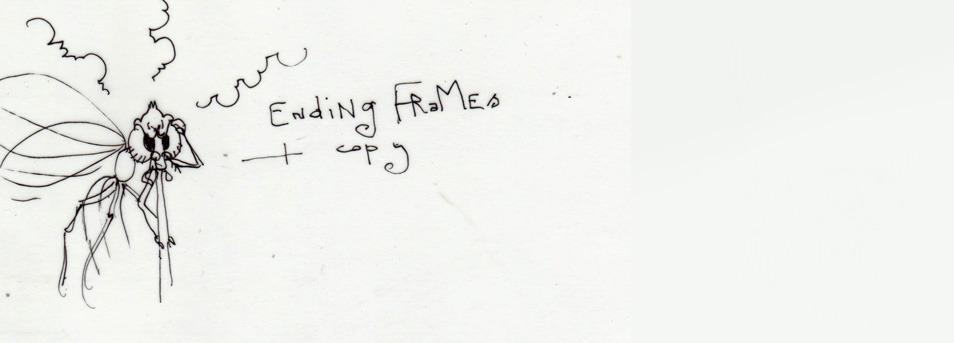 ENdiNg FRaMEs
+ copy